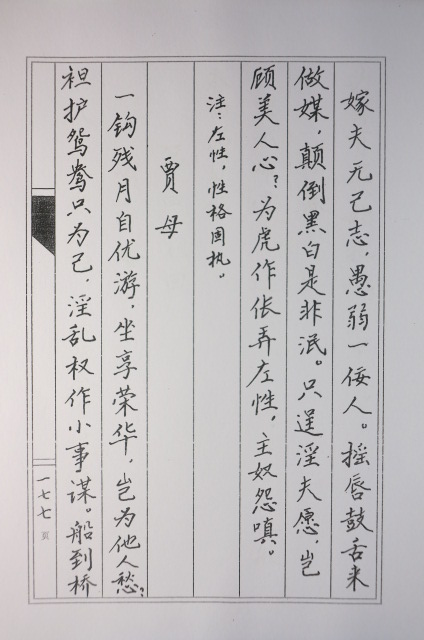 嫁夫无己志，愚弱一佞人。摇唇鼓舌来
做媒，颠倒黑白是非泯。只逞淫夫愿，岂
顾美人心？为虎作伥弄左性，主奴怨嗔。
注：左性，性格固执。
贾母
一钩残月自优游，坐享荣华，岂为他人愁？
袒护鸳鸯只为己，淫乱权作小事谋。船到桥
一七七页